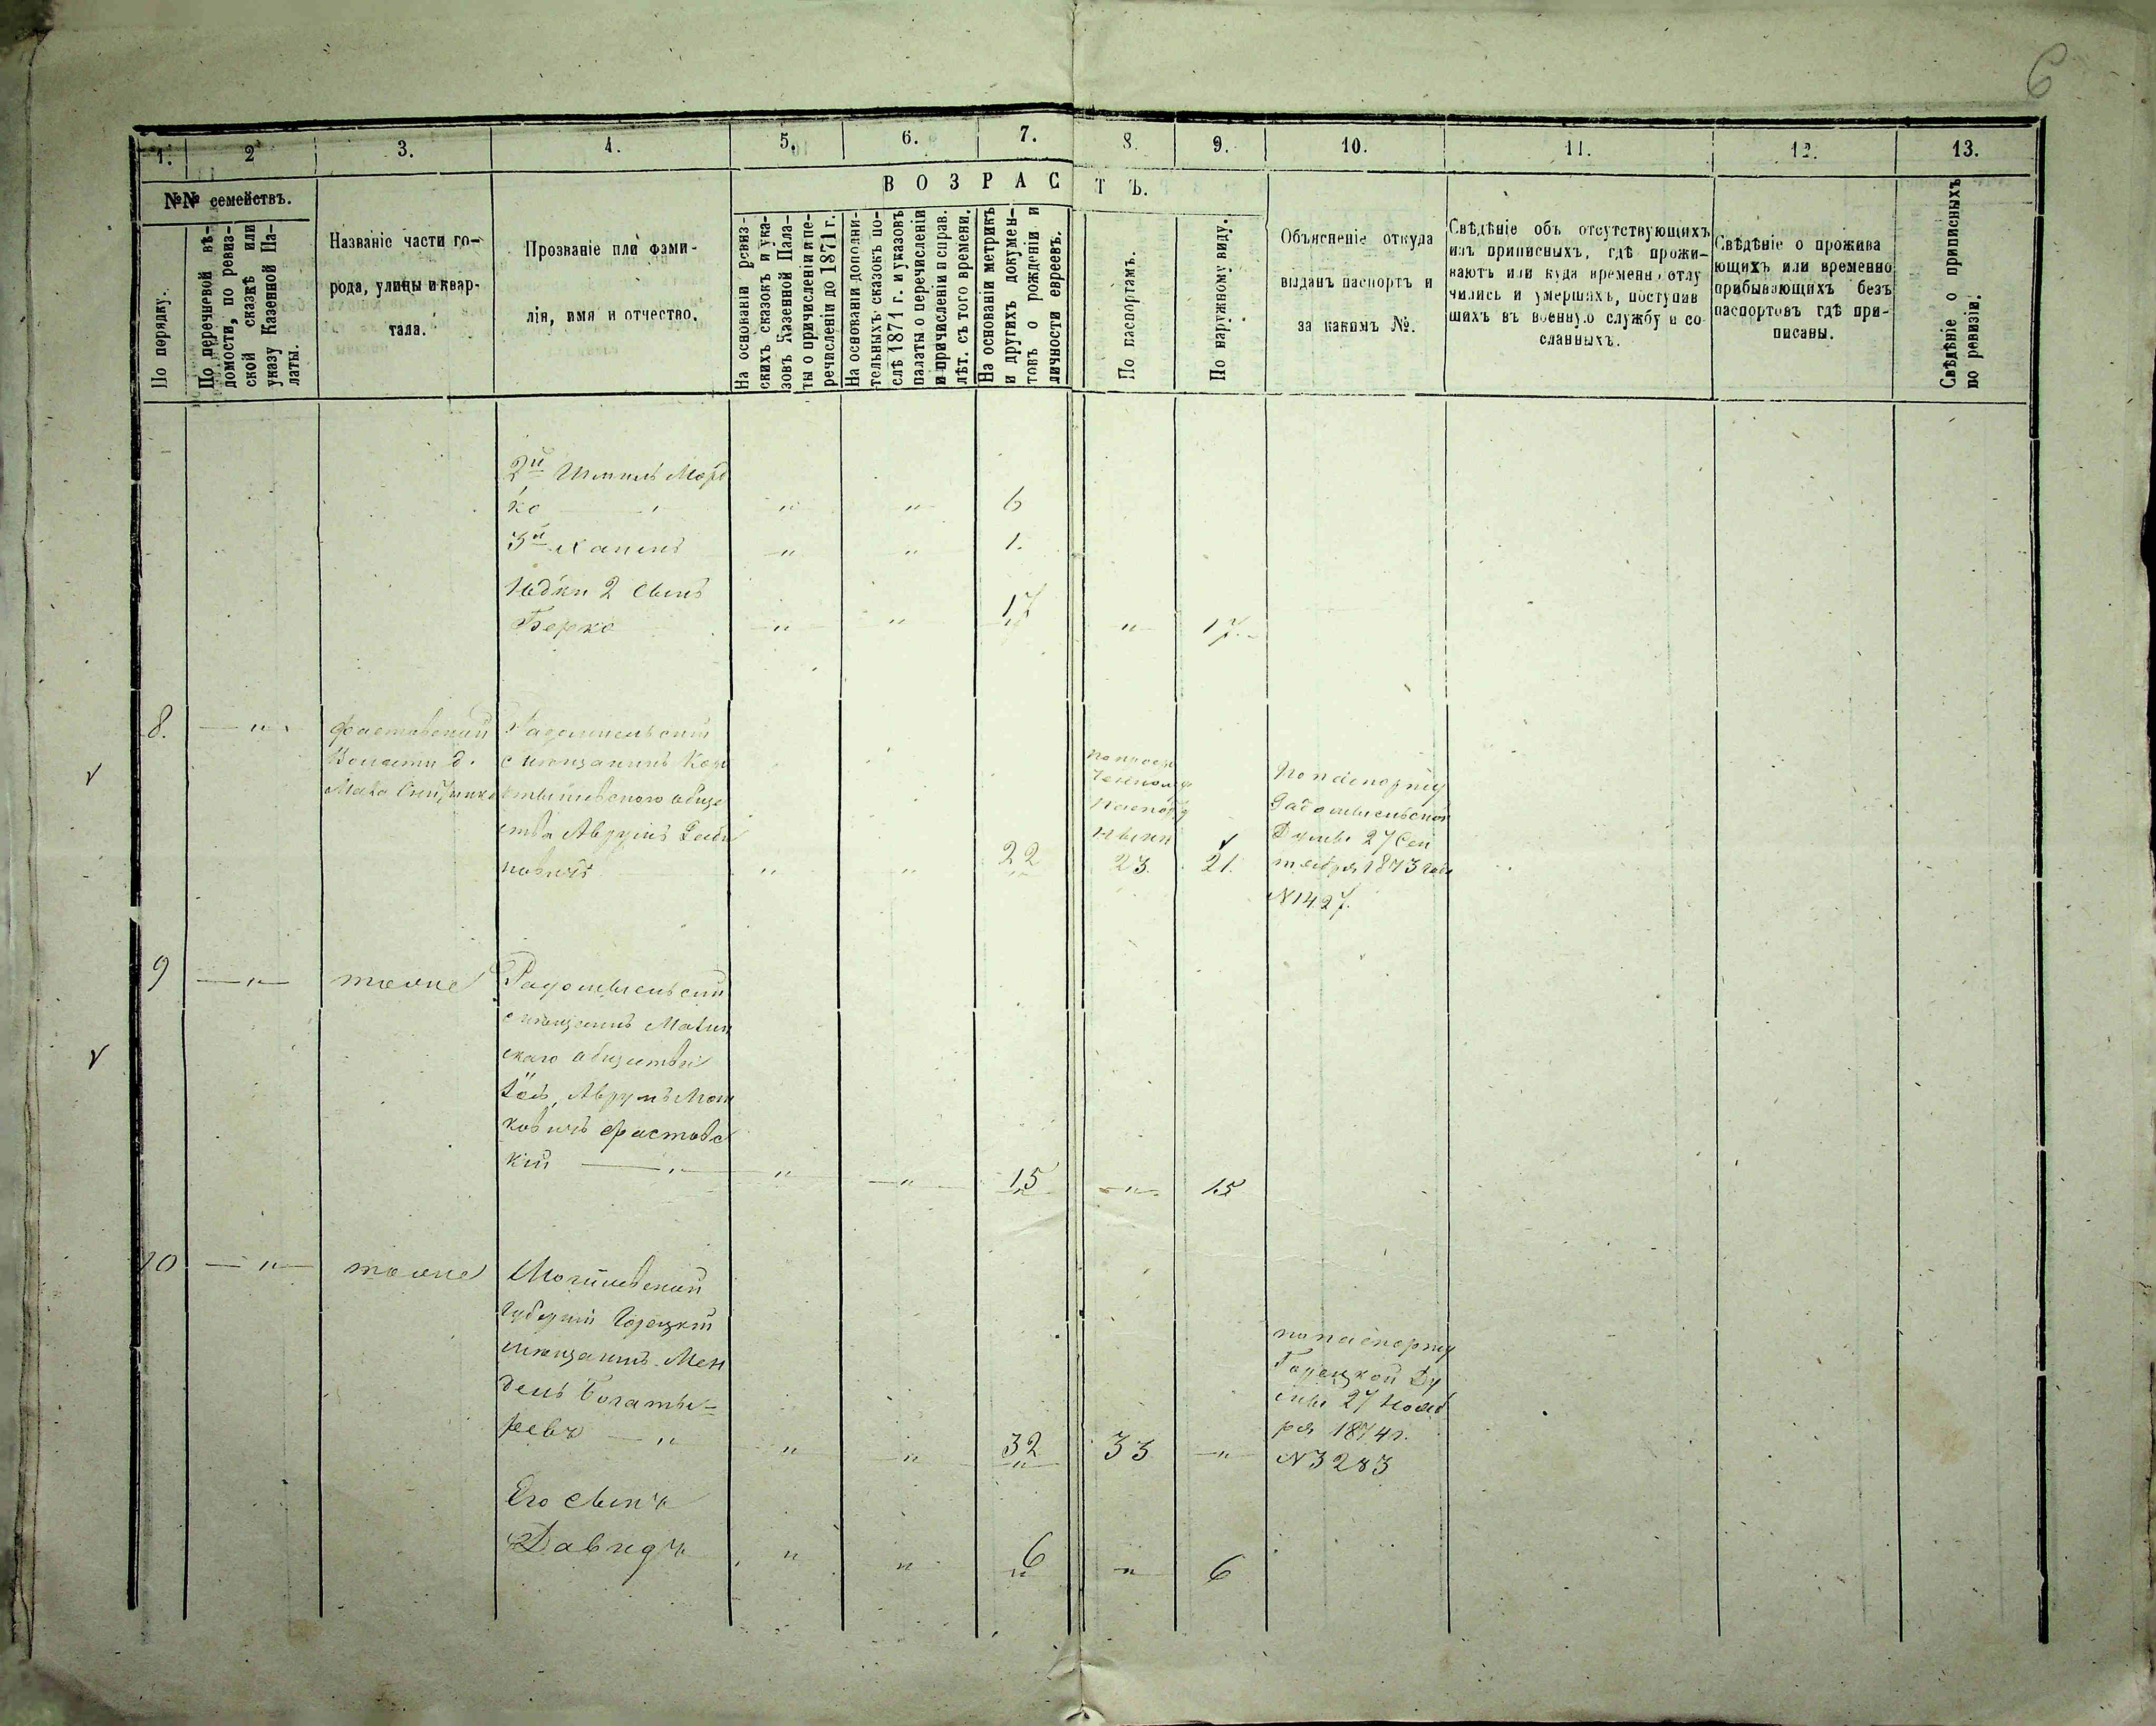 6
1. 2 3. 4. 5. 6. 7. 8. 9. 10. 11. 12. 13.
№№ семействъ.
По порядку.
По перечневой вѣ-
домости, по ревиз-
ской сказкѣ или
указу Казенной Па-
латы.
Названіе части го-
рода, улицы и квар-
тала.
Прозваніе или фами-
лія, имя и отчество.
ВОЗРАСТЪ.
На основаніи ревиз-
скихъ сказокъ и ука-
зовъ Казенной Пала-
ты о причисленіи и пе-
речисленіи до 1871 г.
На основаніи дополни-
тельныхъ сказокъ по-
слѣ 1871 г. и указовъ
палаты о перечисленіи
и причисленіи и справ.
лѣт. съ того времени.
На основаніи метрикъ
и другихъ докумен-
товъ о рожденіи и
личности евреевъ.
По паспортамъ.
По наружному виду.
Объясненіе откуда
выданъ паспортъ и
за какимъ №.
Свѣдѣніе объ отсутствующихъ
изъ приписныхъ, гдѣ прожи-
ваютъ или куда временно отлу
чились и умершихъ, поступив
шихъ въ военную службу и со
сланныхъ.
Свѣдѣніе о прожива
ющихъ или временно
прибывающихъ безъ
паспортовъ гдѣ при-
писаны.
Свѣдѣніе о приписныхъ
по ревизіи.
2й Шмиль Морд
ко — " " " 6
3й Хаимъ " " 1.
Юдки 2 сынъ
Берко " " 17 " 17.
8. — " фастовский
Волости д.
Мала
Радомысльский
мѣщанинъ Кор
обще
ства Аврумъ
новичъ " " 22 23. 21.
По паспорту
Радомысльской
Думы 27 Сен
тября 1873 года
№ 1427.
9 — " — тоже
Радомысльский
мѣщанинъ Малин
скаго общества
Аврумъ Мош
ковичъ Фастовс
кий — " " " 15 " 15
10 — " — тоже
Могилевский
Губернии Горецкий
мѣщанинъ Мен
дель Богаты-
ревъ — " " " 32 33 "
по паспорту
Горецкой Ду
мы 27 Нояб
ря 1874 г.
№ 3283
Его сынъ
Давидъ " " 6 " 6